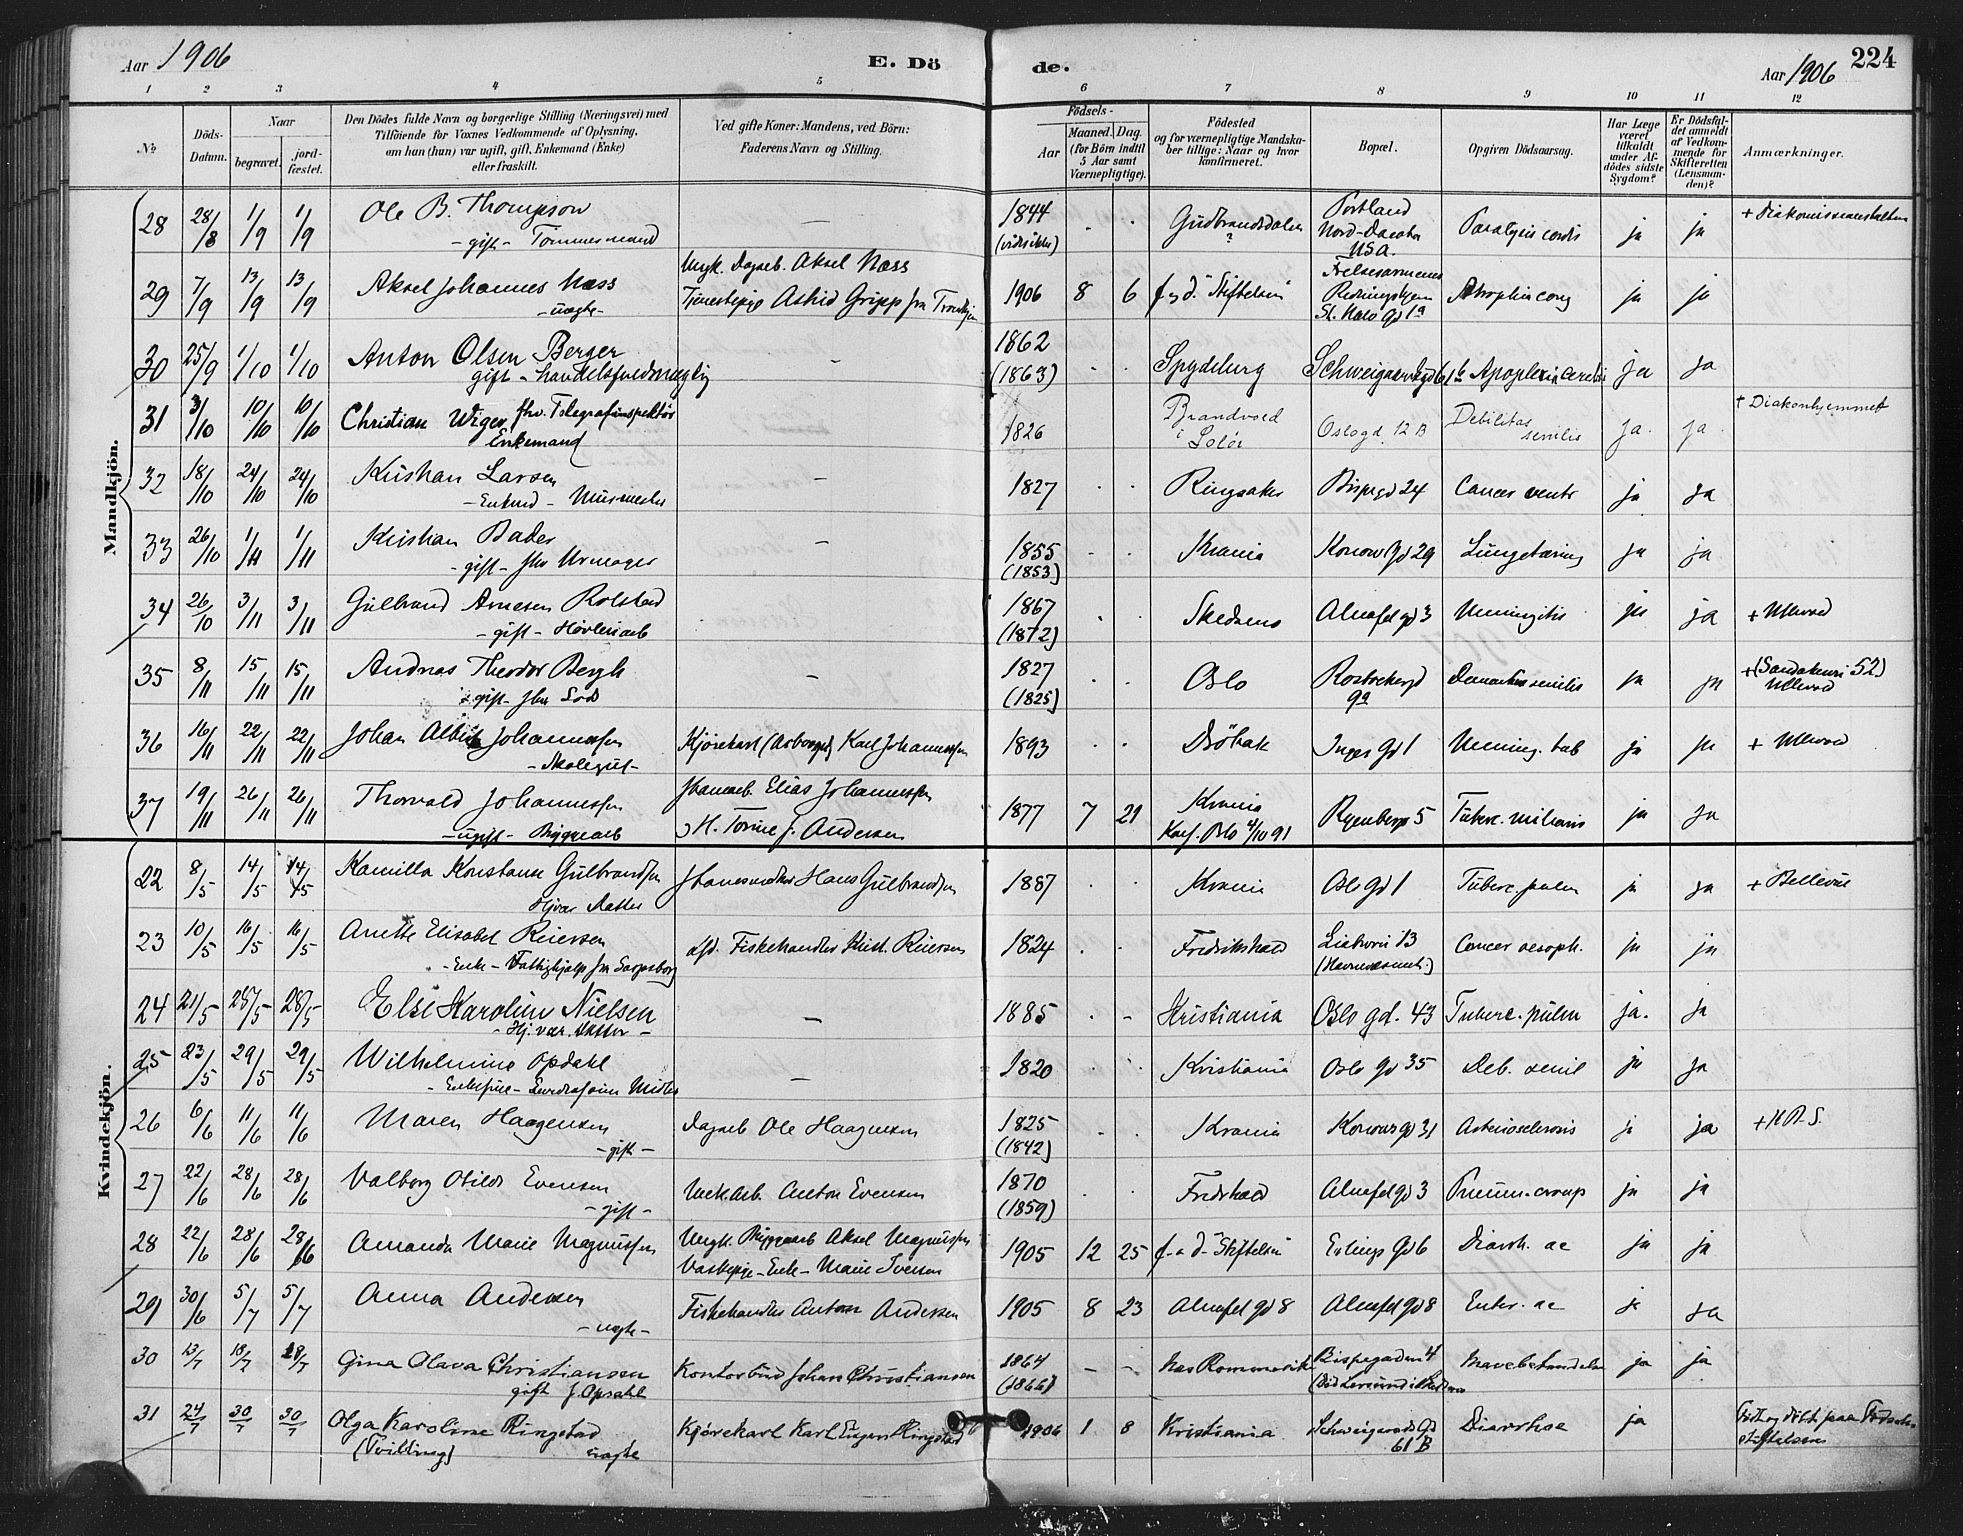 Aar 1906
E. Dö
de.
Aar 1906
224
1 2 3 4 5 6 7 8 9 10 11 12
No
Döds-Datum.
Naar
begravet.
jord-fæstet.
Den Dödes fulde Navn og borgerlige Stilling (Næringsvei) med
Tilföiende for Voxnes Vedkommende af Oplysning,
om han (hun) var ugift, gift, Enkemand (Enke)
eller fraskilt.
Ved gifte Koner: Mandens, ved Börn:
Faderens Navn og Stilling.
Födsels-
Aar
Maaned. Dag.
(for Börn indtil
5 Aar samt
Værnepligtige).
Födested
og for værnepligtige Mandska-
ber tillige: Naar og hvor
konfirmeret.
Bopæl.
Opgiven Dödsaarsag.
Har Læge
været
tilkaldt
under Af-
dödes sidste
Sygdom?
Er Dödsfal-
det anmeldt
af Vedkom-
mende for
Skifteretten
(Lensman-
den)?
Anmærkninger.
Mandkjön.
28 28/8 1/9 1/9 Ole B. Thompson - gift - Tömmermand — 1844 . . Gudbrandsdalen ? Portland Nord-Dacota USA. Paralysis cordis ja ja
29 7/9 13/9 13/9 Aksel Johannes Næss - uægte - Ungk. Dagarb. Aksel Næss Tjenestepige Astrid Gripp fra Trondhjem 1906 8 6 f. og d. "Stiftelsen" Frelsesarmeens Atrophia cong ja ja
30 25/9 1/10 1/10 Anton Olsen Berger gift - - 1862 (1863) . . Spydeberg Schweigaardsgd 61b Apoplexia cerebri ja ja
31 3/10 10/10 10/10 Christian Wiger, fhv. Telegrafinspektör Enkemand 1826 Brandvold i Solör Oslogd. 12 B Debilitas senilis ja. ja. † Diakonhjemmet
32 18/10 24/10 24/10 Kristian Larsen - Enkmd - Murmester - 1827 . . Ringsaker Bispegd 24 Cancer ventr ja ja
33 26/10 1/11 1/11 Kristian Bader - gift - fhv Urmager - 1855 (1853) . . Krania Konows Gd 29 Lungetæring ja ja
34 26/10 3/11 3/11 Gulbrand Arnesen Rolstad - gift - Høvleriarb 1867 (1872) . . Skedsmo Alnafel gd 3 Meningitis ja ja + Ullevold
35 8/11 15/11 15/11 Andreas Theodor Bergh gift - fhv Lods - 1827 (1825) . . Oslo 9a Dementia senilis ja ja
36 16/11 22/11 22/11 Johan Albin Johannessen - Skolegut - Kjørekarl Karl Johannessen 1893 . . Dröbak Inges Gd 1 Mening. tub ja ja + Ullevold
37 19/11 26/11 26/11 Thorvald Johannessen - ugift - Bryggearb Elias Johannessen og H. Torine f. Andersen 1877 7 21 Krania Konf. Oslo 4/10 91 Ryenbergv 5 Tuberc. miliaris ja ja
Kvindekjön.
22 8/5 14/5 14/5 Kamilla Konstanse Gulbrandsen Hjvær. Datter Hans Gulbrandsen 1887 . . Krania Oslo gd 1 Tuberc. pulm ja ja + Bellevue
23 10/5 16/5 16/5 Anette Elisabet Reiersen - Enke - Fattighjælp fra Sarpsborg afd. Fiskehandler Krist. Reiersen 1824 . . Fredrikshald 13 Cancer oesoph. ja ja
24 21/5 28/5 28/5 Else Karoline Nielsen - Hj. vær. Datter - — 1885 . - Kristiania Oslo gd. 43 Tuberc. pulm ja. ja
25 23/5 29/5 29/5 Wilhelmine Opdahl - — 1820 . . Kristiania Oslo gd 35 Deb. senil ja ja
26 6/6 11/6 11/6 Maren Haagensen - gift - Dagarb Ole Haagensen 1825 (1842) . . Krania Konows gd 31 Arteriosclerosis ja ja
27 22/6 28/6 28/6 Valborg Otilde Evensen - gift - Anton Evensen 1870 (1859) . . Fredrhald Alnafel gd 3 Pneum. croup ja ja
28 22/6 28/6 28/6 Amanda Marie Magnussen Ungk. Bryggearb Aksel Magnussen - Enke - Marie Iversen 1905 12 25 f. o d. "Stiftelsen" Erlings Gd 6 Diarrh. ac ja ja
29 30/6 5/7 5/7 Anna Andersen - uægte - Fiskehandler Anton Andersen 1905 8 23 Alnafel gd 8 Alnafel gd 8 Enter. ac ja ja
30 13/7 18/7 18/7 Gina Olava Christiansen gift f. Opsahl Kontorbud Johan Christiansen 1864 (1866) - - Nes Romerike Bispegaden 4 ja ja
31 24/7 30/7 30/7 Olga Karoline Ringstad (Tvilling) uægte Kjørekarl Karl Ringstad 1906 1 8 Kristiania Schweigaards Gd 61 B Diarrhoe ja Födt og döbt paa Födselsstiftelsen